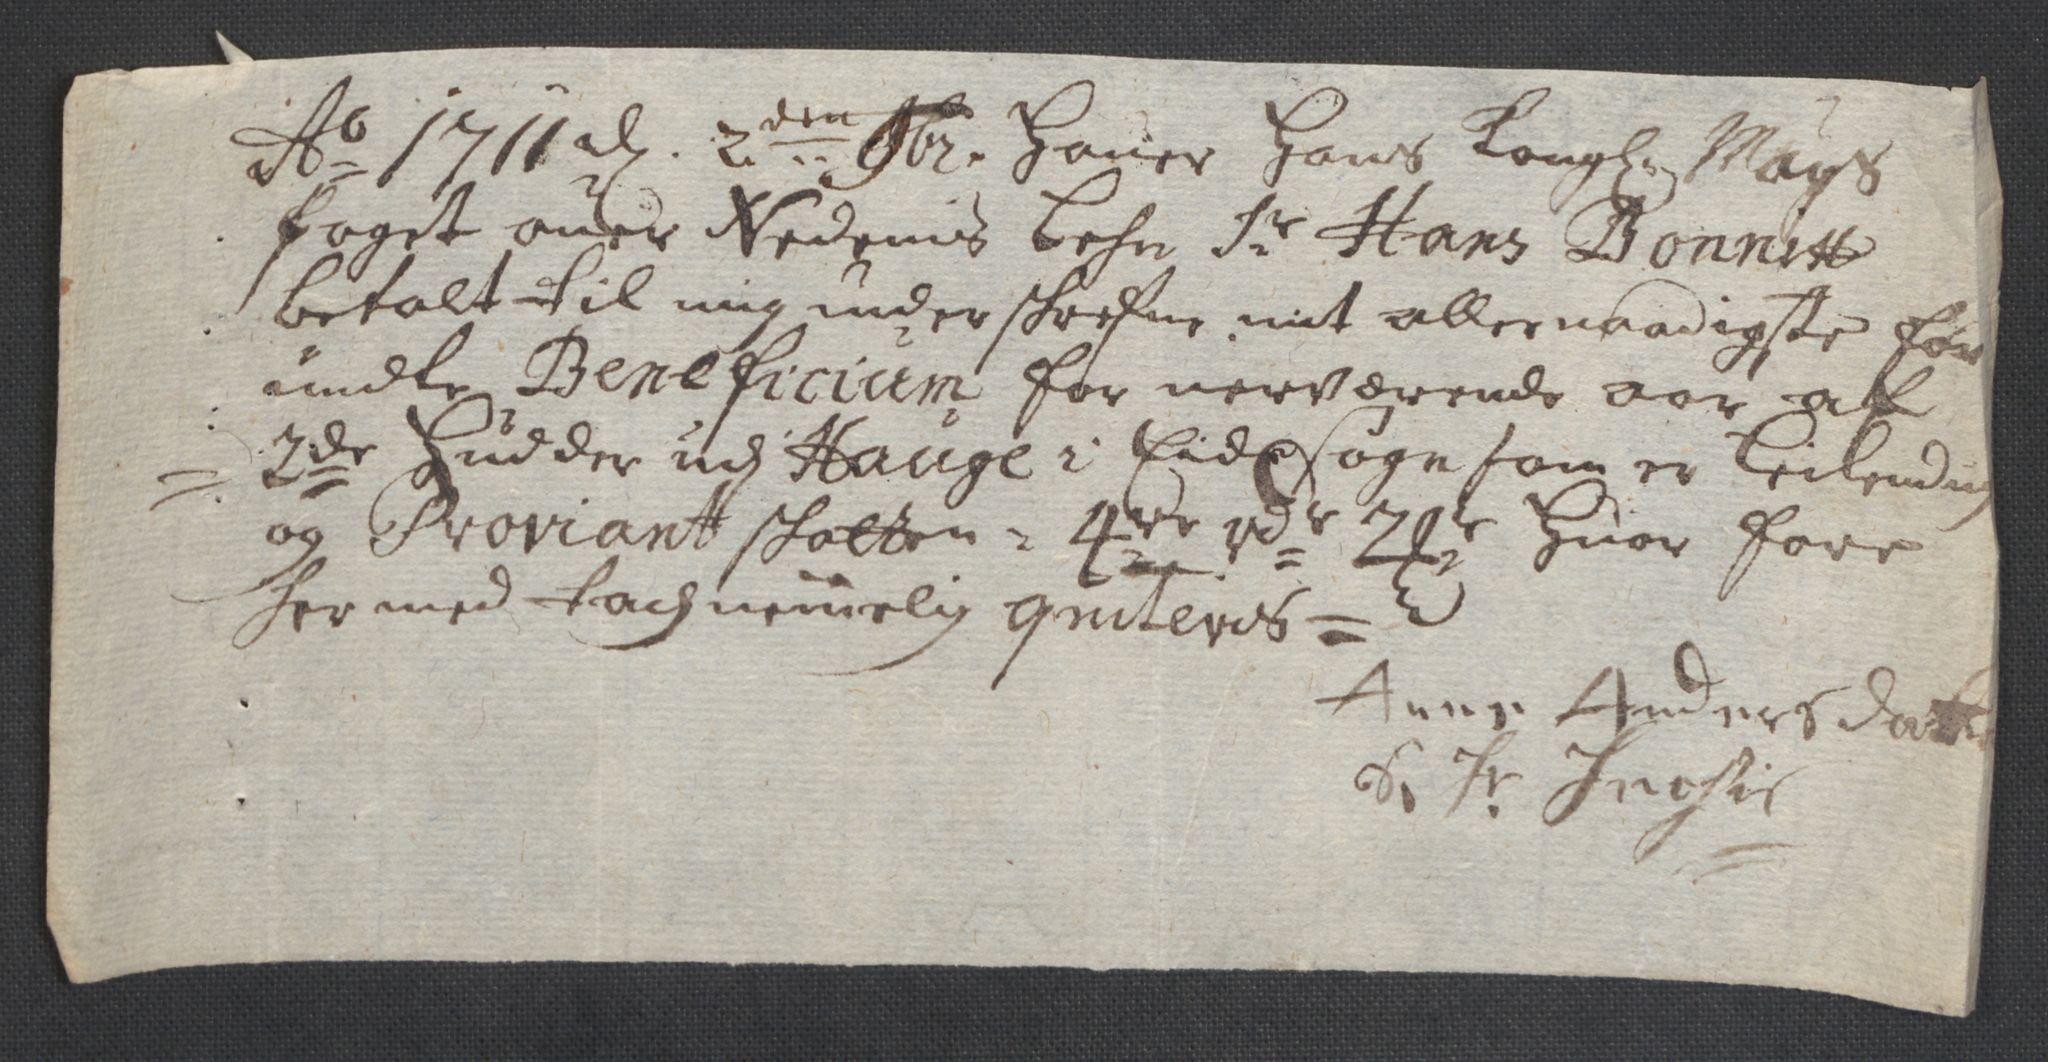 Ao 1711 d. 2den 9br. Hauer Hans Kongl. Mays
foget ouer Nedenis Lehn Sr Hans Bonnitt
betalt til mig underschrefne mit allernaadigste for
undte Beneficium for nerværende aar af
2de Hudder udj Hauge i Eidesogn som er Leilending
og Proviant schatten 4re rdr 2 Huor fore
hermed tachnemelig quiteris =
Anne Anders datter
S. Hr